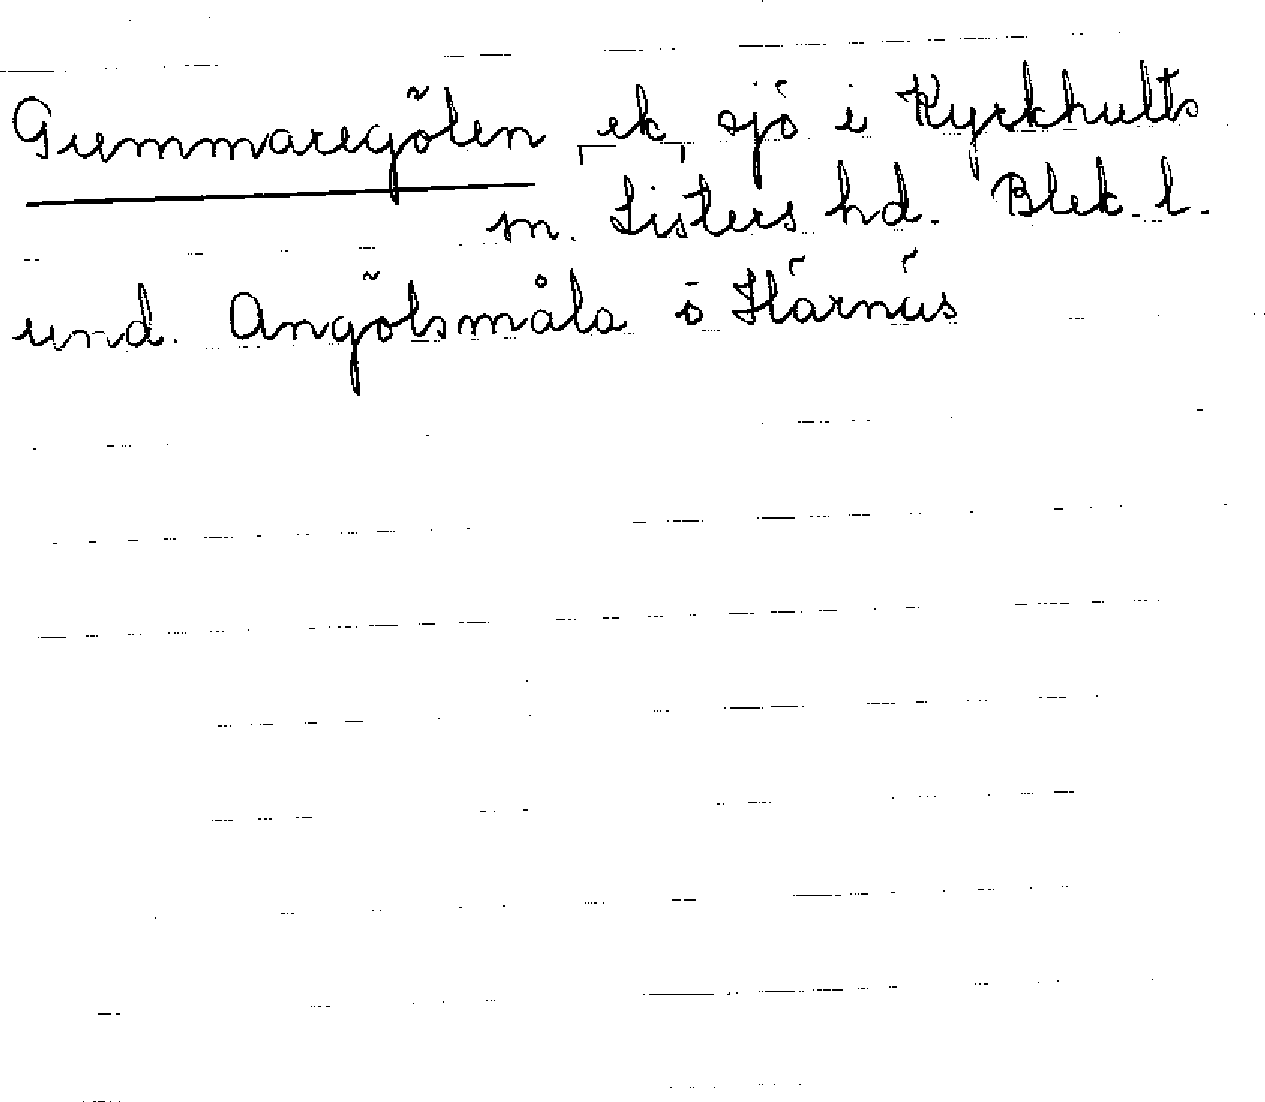 Gummaregölen ek sjö i Kyrkhults
sn. Listers hd. Blek. l.
und. Angölsmåla ö Härnäs